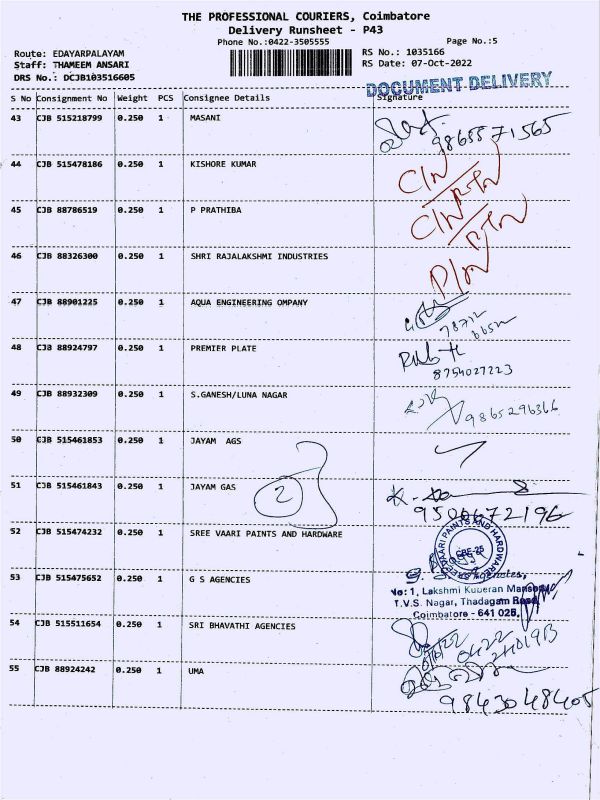 THE PROFESSIONAL COURIERS, Coimbatore
Delivery Runsheet - P43
Phone No.:0422-3505555
Page No.:5
Route: EDAYARPALAYAM
RS No.: 1035166
Staff: THAMEEM ANSARI
RS Date: 07-Oct-2022
DRS No.: DCJB103516605
DOCUMENT DELIVERY
S No Consignment No Weight PCS Consignee Details Signature
43 CJB 515218799 0.250 1 MASANI
9865571565
44 CJB 515478186 0.250 1 KISHORE KUMAR
45 CJB 88786519 0.250 1 P PRATHIBA
46 CJB 88326300 0.250 1 SHRI RAJALAKSHMI INDUSTRIES
47 CJB 88901225 0.250 1 AQUA ENGINEERING OMPANY
48 CJB 88924797 0.250 1 PREMIER PLATE
8754027223
49 CJB 88932309 0.250 1 S.GANESH/LUNA NAGAR
9865296366
50 CJB 515461853 0.250 1 JAYAM AGS
51 CJB 515461843 0.250 1 JAYAM GAS 2
9500672196
52 CJB 515474232 0.250 1 SREE VAARI PAINTS AND HARDWARE
SREE VAARI PAINTS AND HARDWARE
CBE-25
53 CJB 515475652 0.250 1 G S AGENCIES
No: 1, Lakshmi Kuberan Mansion
T.V.S. Nagar, Thadagam Road,
Coimbatore - 641 025.
54 CJB 515511654 0.250 1 SRI BHAVATHI AGENCIES
55 CJB 88924242 0.250 1 UMA
9843048405